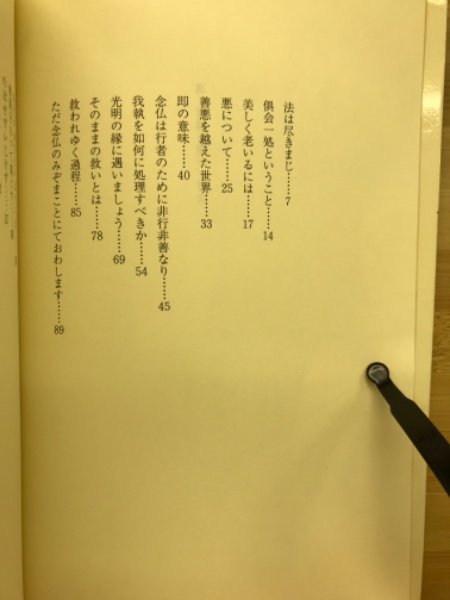 法は尽きまじ……7
倶会一処ということ……14
美しく老いるには……17
悪について……25
善悪を越えた世界……33
即の意味……40
念仏は行者のために非行非善なり……45
我執を如何に処理すべきか……54
光明の縁に遇いましょう……69
そのままの救いとは……78
救われゆく過程……85
ただ念仏のみぞまことにておわします……89